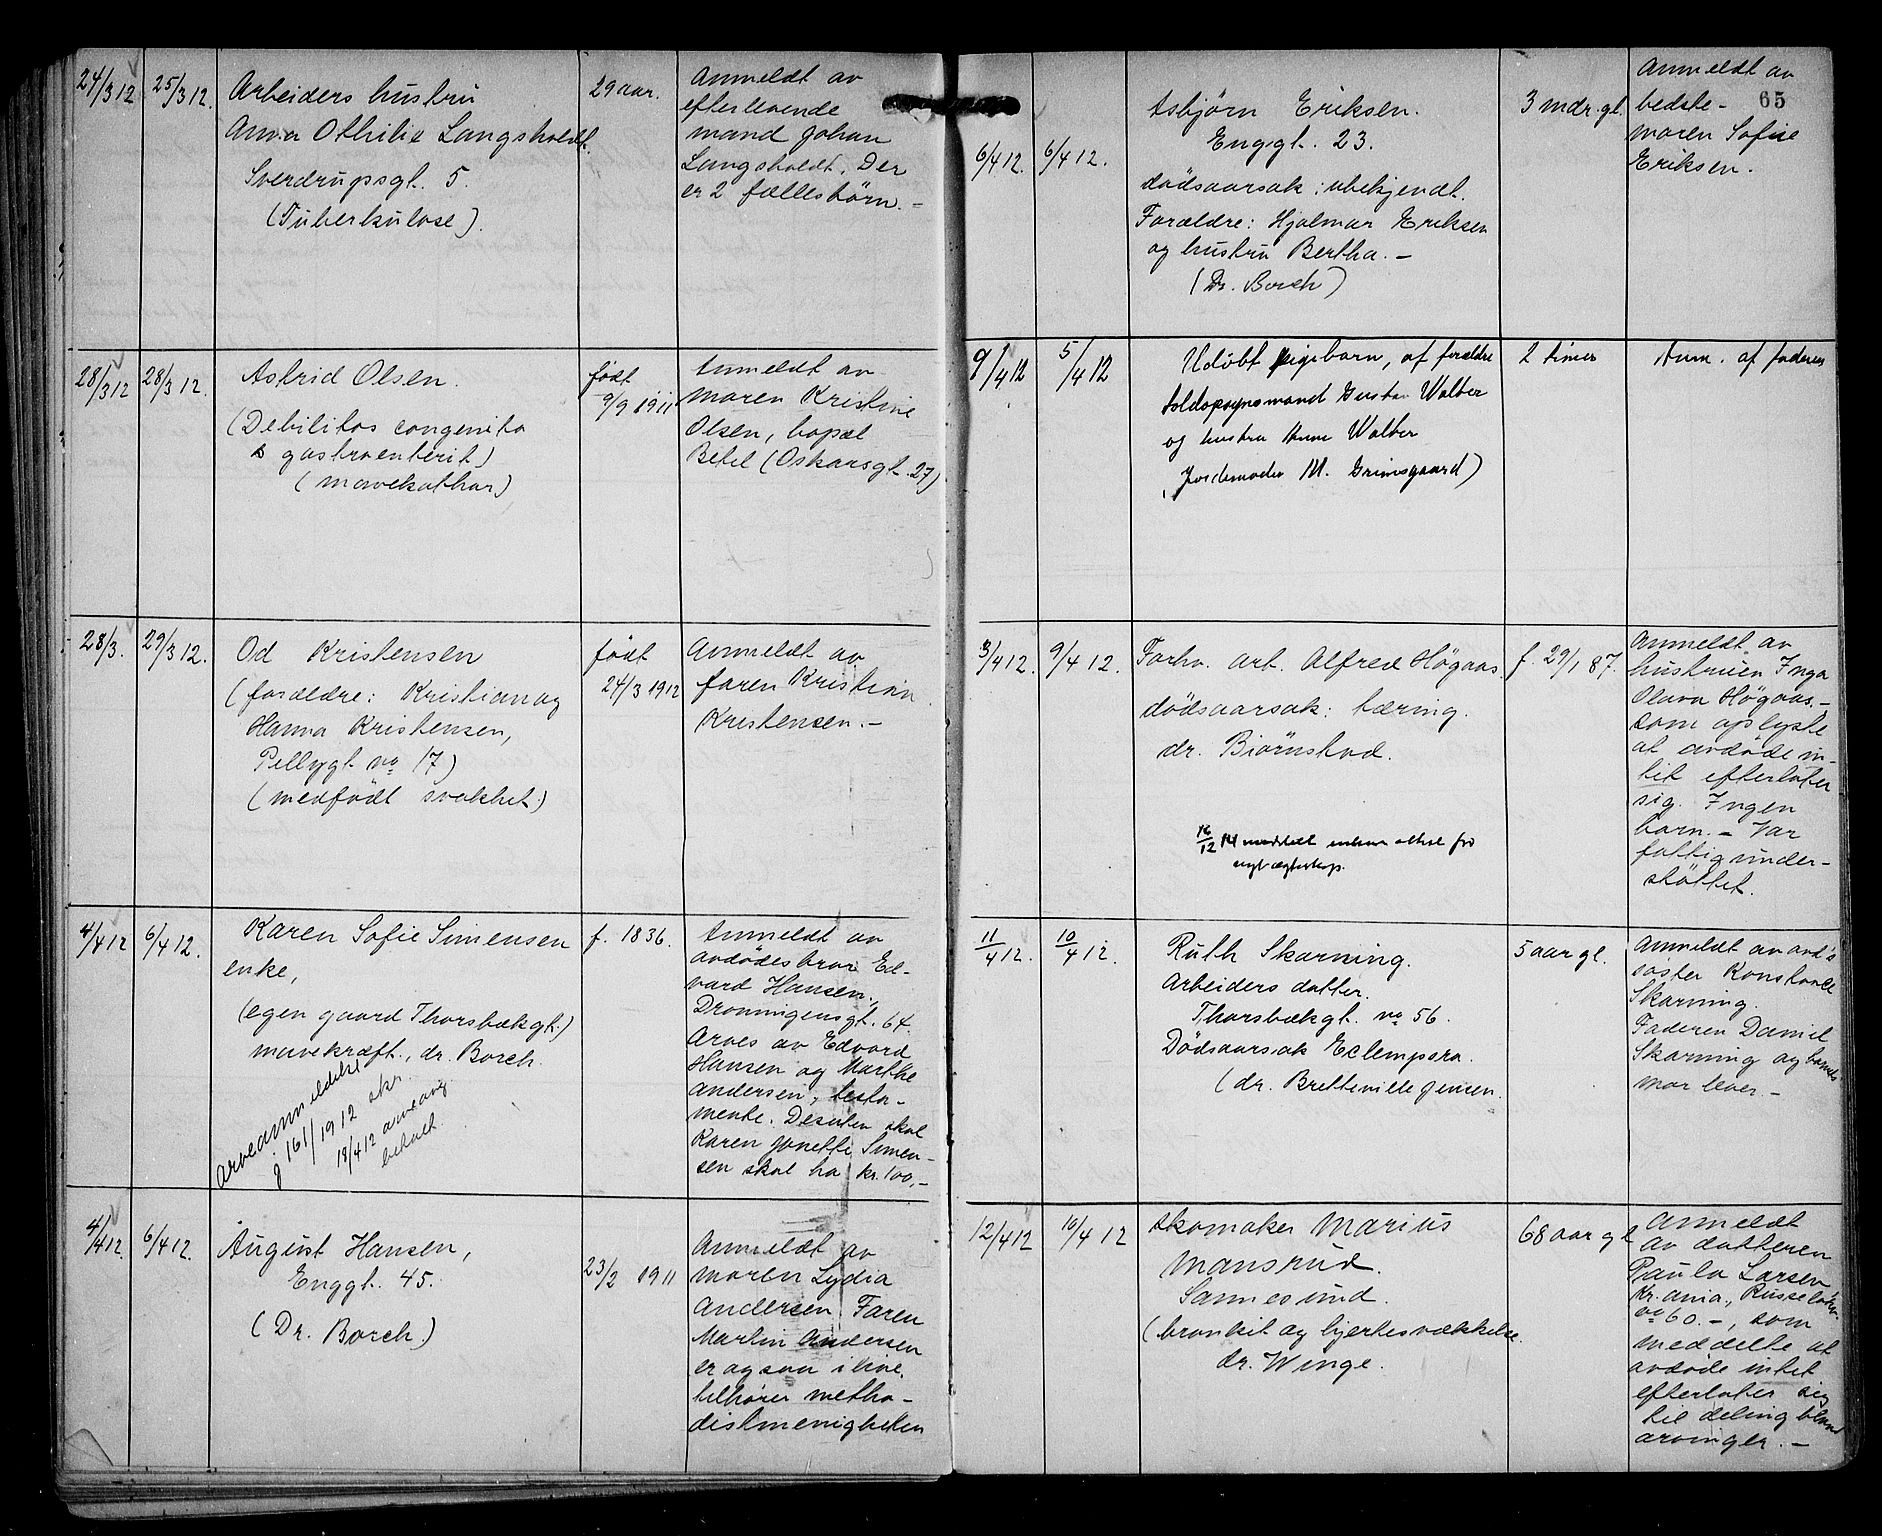 24/3 12
25/3 12.
Arbeiders hustru
Anna Othilie Langsholdt.
Sverdrupsgt. 5.
(Tuberkulose).
29 aar.
Anmeldt av
efterlevende
mand Johan
Langsholdt. Der
er 2 fællesbörn. -
28/3 12
28/3 12.
Astrid Olsen.
(Debilitas congenita
& gastroenterit)
(mavekathar)
født
9/9 1911
Anmeldt av
moren Kristine
Olsen, bopæl
Betel (Oskarsgt. 27)
28/3.
29/3 12.
Od Kristensen
(forældre: Kristian og
Hanna Kristensen,
Pellygt no 17)
(medfödt svakhet.)
født
24/3 1912
Anmeldt av
faren Kristian
Kristensen. -
4/4 12
6/4 12.
Karen Sofie Simensen
enke,
(egen gaard Thorsbækgt.)
mavekræft., dr. Borch.
Arveanmeldelse
J 161/1912 skr.
18/4 12 arveavg.
betalt.
f. 1836.
Anmeldt av
avdödes bror Ed-
vard Hansen,
Dronningensgt. 64.
Arves av Edvard
Hansen og Marthe
Andersen, testa-
mente. Desuten skal
Karen Jonette Simen-
sen skal ha kr. 100,-
4/4 12.
6/4 12.
August Hansen,
Enggt. 45.
(Dr. Borch.)
23/2 1911
Anmeldt av
moren Lydia
Andersen. Faren
Martin Andersen
er ogsaa i live,
tilhører metho-
distmenigheten
65
6/4 12.
6/4 12.
Asbjörn Eriksen.
Enggt. 23.
dödsaarsak: ubekjendt.
Forældre: Hjalmar Eriksen
og hustru Bertha. -
(Dr. Borch)
3 mdr. gl.
Anmeldt av
bedste-
moren Sofie
Eriksen.
9/4 12
5/4 12
Udöbt pigebarn, af forældre
toldopsynsmand Gustav Walber
og hustru Anne Walber
(Jordemoder M. Grimsgaard)
2 timer
Anm. af faderen
3/4 12.
9/4 12.
Forhv. arb. Alfred Högaas.
dödsaarsak: tæring.
dr. Biörnstad.
16/12 14 meddelt enken attest for
nyt ægteskap.
f. 29/1 87.
Anmeldt av
hustruen Inga
Olava Högaas. -
som oplyste
at avdöde in-
tet efterlater
sig. Ingen
barn. - Var
fattigunder-
stöttet.
11/4 12.
10/4 12.
Ruth Skarning.
Arbeiders datter.
Thorsbækgt. no 56.
Dödsaarsak Eclempsera.
(dr. Bretteville Jensen.
5 aar gl.
Anmeldt av avd's
søster Konstance
Skarning.
Faderen Daniel
Skarning og barnets
mor lever. -
12/4 12
10/4 12
Skomaker Marius
Mansrud.
Sannesund.
(bronkit og hjertesvækkelse.
dr. Winge.
68 aar gl
Anmeldt
av datteren
Paula Larsen
Kr.ania,
no 60. -, som
meddelte at
avdöde intet
efterlater sig
til deling bland
arvinger. -